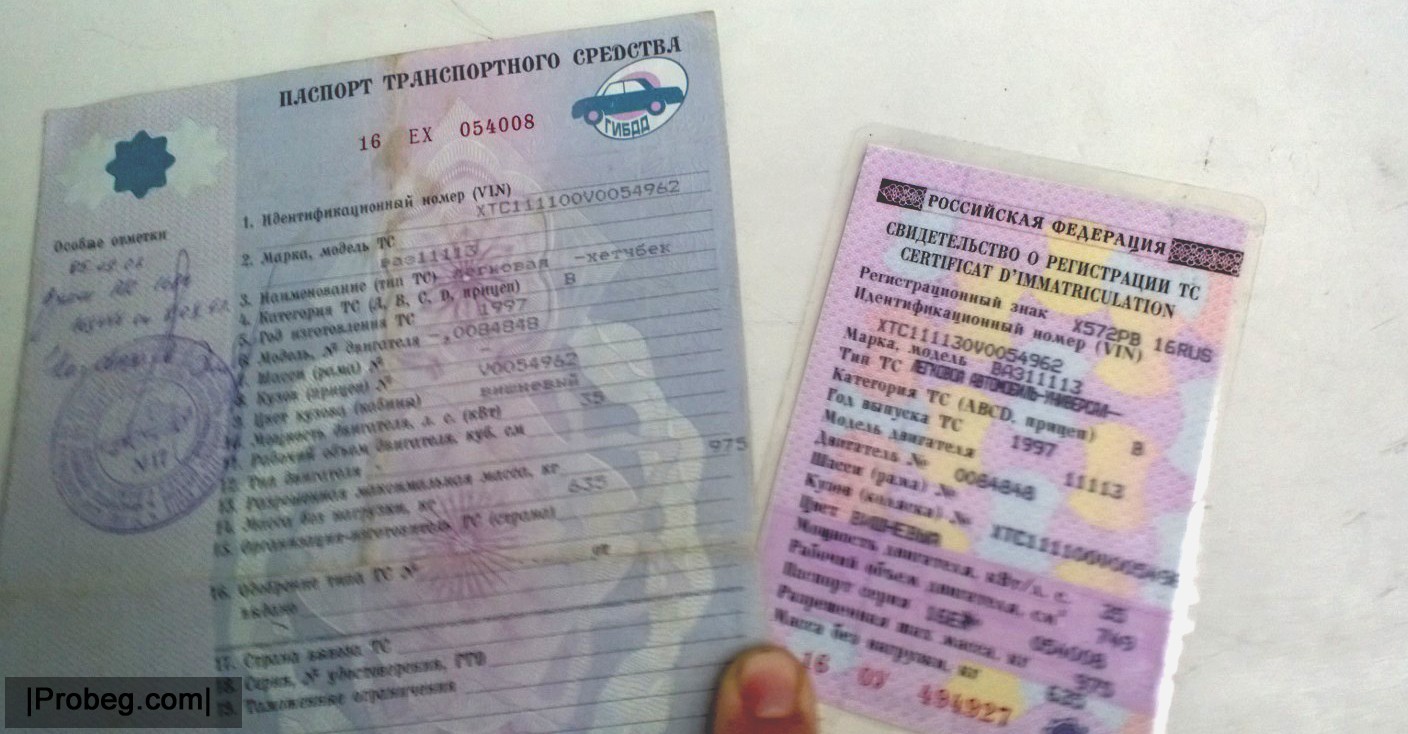 ПАСПОРТ ТРАНСПОРТНОГО СРЕДСТВА
16 ЕХ 054008
ГИБДД
Особые отметки
1. Идентификационный номер (VIN)
XTC111100V0054962
2. Марка, модель ТС
ваз11113
3. Наименование (тип ТС) легковая -хетчбек
4. Категория ТС (А, В, С, D, прицеп) В
5. Год изготовления ТС 1997
6. Модель, № двигателя -,0084848
7. Шасси (рама) № -
8. Кузов (прицеп) № V0054962
9. Цвет кузова (кабины) вишневый
10. Мощность двигателя, л. с. (кВт) 35
11. Рабочий объем двигателя, куб. см
12. Тип двигателя
13. Разрешенная максимальная масса, кг 975
14. Масса без нагрузки, кг 635
15. Организация-изготовитель ТС (страна)
16. Одобрение типа ТС № от
выдано
17. Страна вывоза ТС
18. Серия, № удостоверения, ГТД
19. Таможенные ограничения
РОССИЙСКАЯ ФЕДЕРАЦИЯ
СВИДЕТЕЛЬСТВО О РЕГИСТРАЦИИ ТС
CERTIFICAT D'IMMATRICULATION
Регистрационный знак Х572РВ 16RUS
Идентификационный номер (VIN)
XTC111130V0054962
Марка, модель ВАЗ11113
Тип ТС ЛЕГКОВОЙ АВТОМОБИЛЬ-УНИВЕРСАЛ
Категория ТС (ABCD, прицеп) В
Год выпуска ТС 1997
Модель двигателя 11113
Двигатель № 0084848
Шасси (рама) №
Кузов (коляска) № XTC111100V005496
Цвет ВИШНЕВЫЙ
Мощность двигателя, кВт/л. с.
Рабочий объем двигателя, см³ 749
Паспорт серия 16ЕХ 054008
Разрешенная max масса, кг 975
Масса без нагрузки, кг 635
16 ОУ 494927
|Probeg.com|